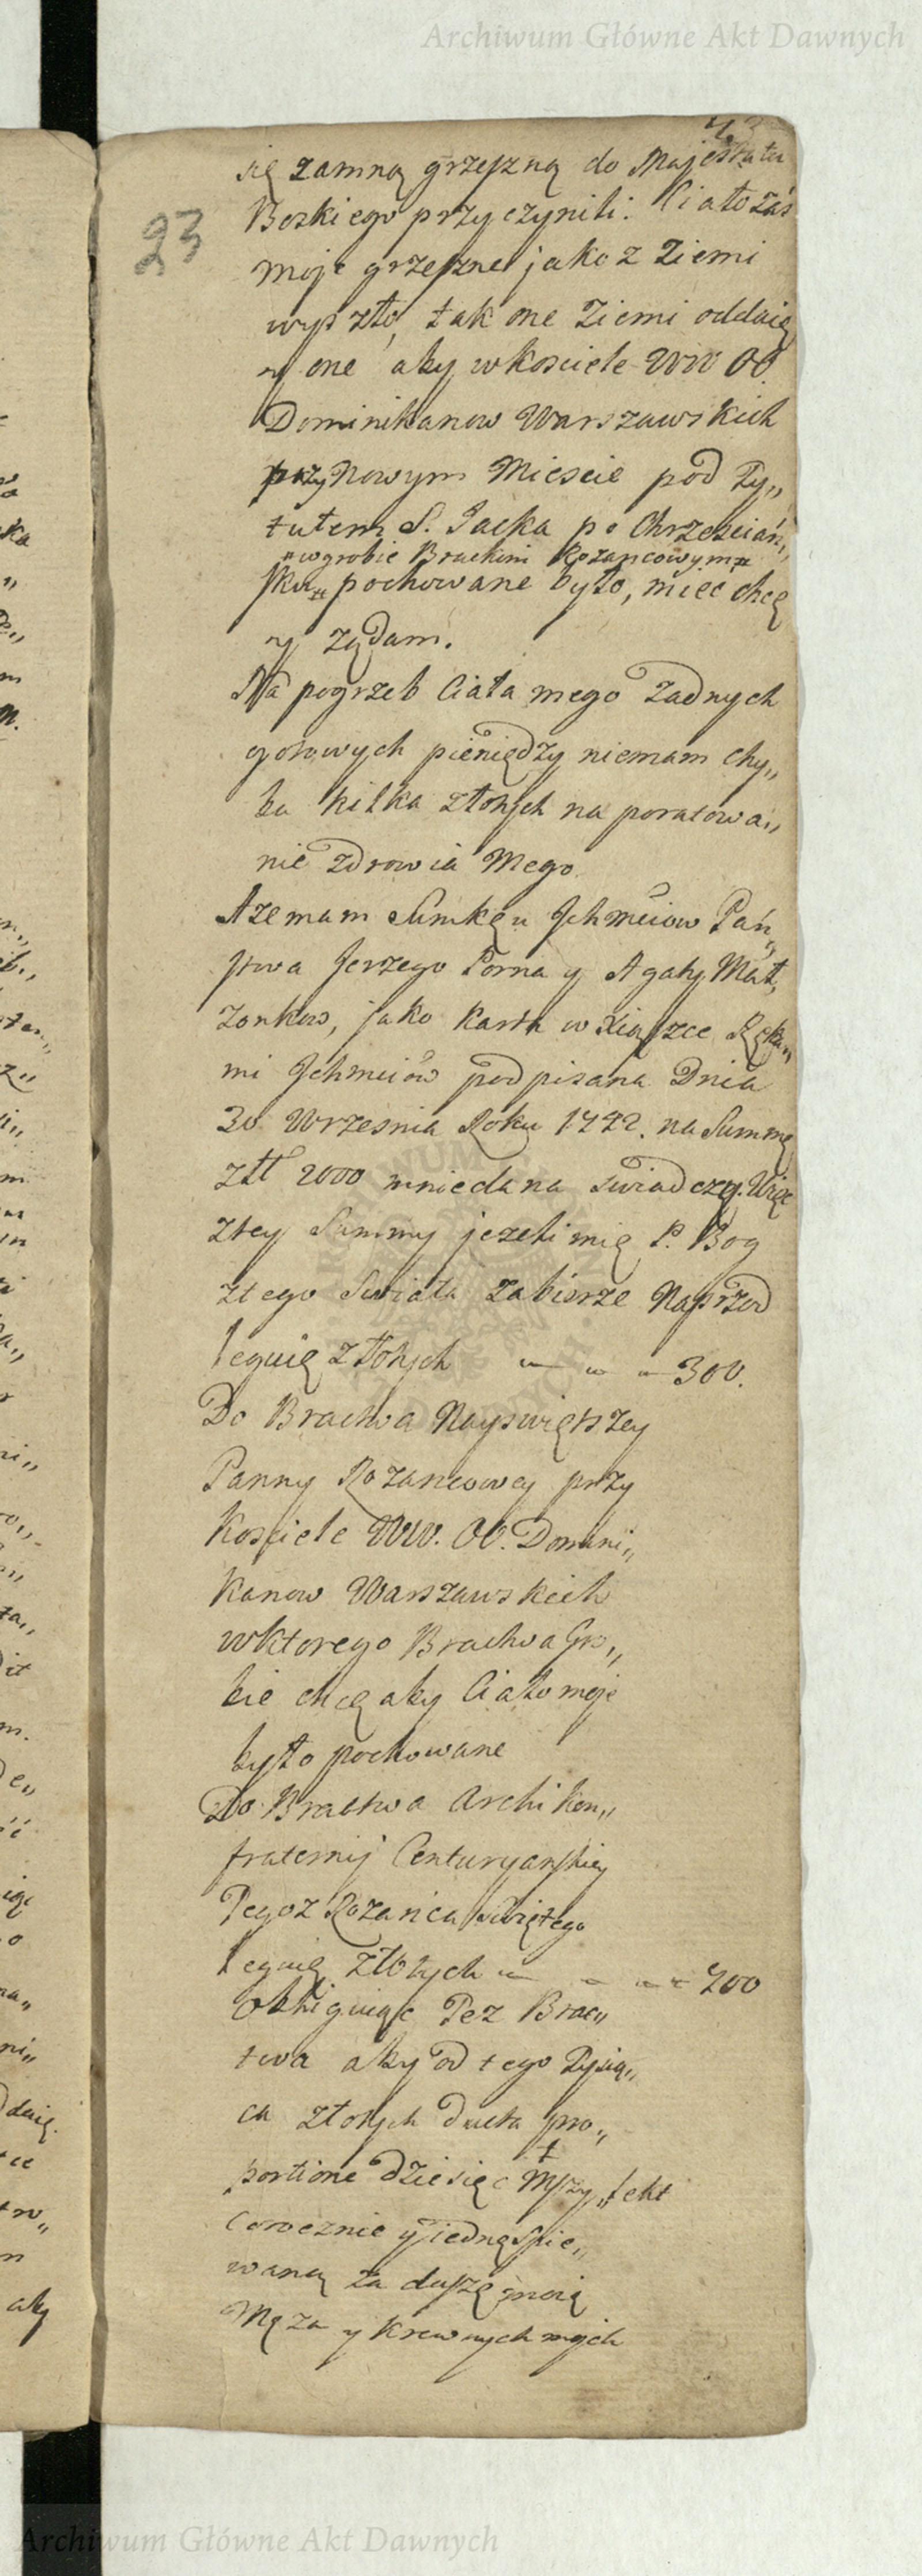 Archiwum Główne Akt Dawnych
23
się zamną grzeszną do Majestatu
Boskiego przyczynili: Ciało zaś
moje grzeszne jako z Ziemi
wyszło, tak one Ziemi oddaię
y one aby wkosciele WW OO
Dominikanow Warszawskich
przy Nowym Miescie pod Ty„
tułem S. Jacka po Chrzesciań„
# wgrobie Brackim Rozancowym #
sku # pochowane było, mieć chcę
y ządam.
Na pogrzeb Ciała mego zadnych
gotowych pieniędzy niemam chy„
ba kilka złotych na poratowa„
nie zdrowia Mego
A ze mam Sumkę u Jchmciow Pań„
stwa Jerzego Torna y Agaty Mał„
zonkow, jako karta w Xiąszce Ręka„
mi Jchmciów podpisana Dnia
30 Wrzesnia Roku 1742. na Summę
złł 2000 mnie dana swiadczy. Więc
ztey Summy jezeli mię P. Bog
ztego Swiata zabierze Naprzod
leguię złotych 300.
Do Bractwa Nayswiętszey
Panny Rozancowey przy
Kosciele WW. OO. Domini„
kanow Warszawskich
wktorego Bractwa Gro„
bie chcę aby Ciało moje
było pochowane
Do Bractwa Archikon„
fraternij Centuryanskiey
Tegoz Rozańca Swiętego
leguię złotych 700
obliguiąc Tez Brac„
twa aby od tego Tysią„
ca złotych ducta pro„
portione dziesięć Mszy „lekt
corocznie y iednę Spie„
waną za duszę moię
Męza y krewnych mych
Archiwum Główne Akt Dawnych